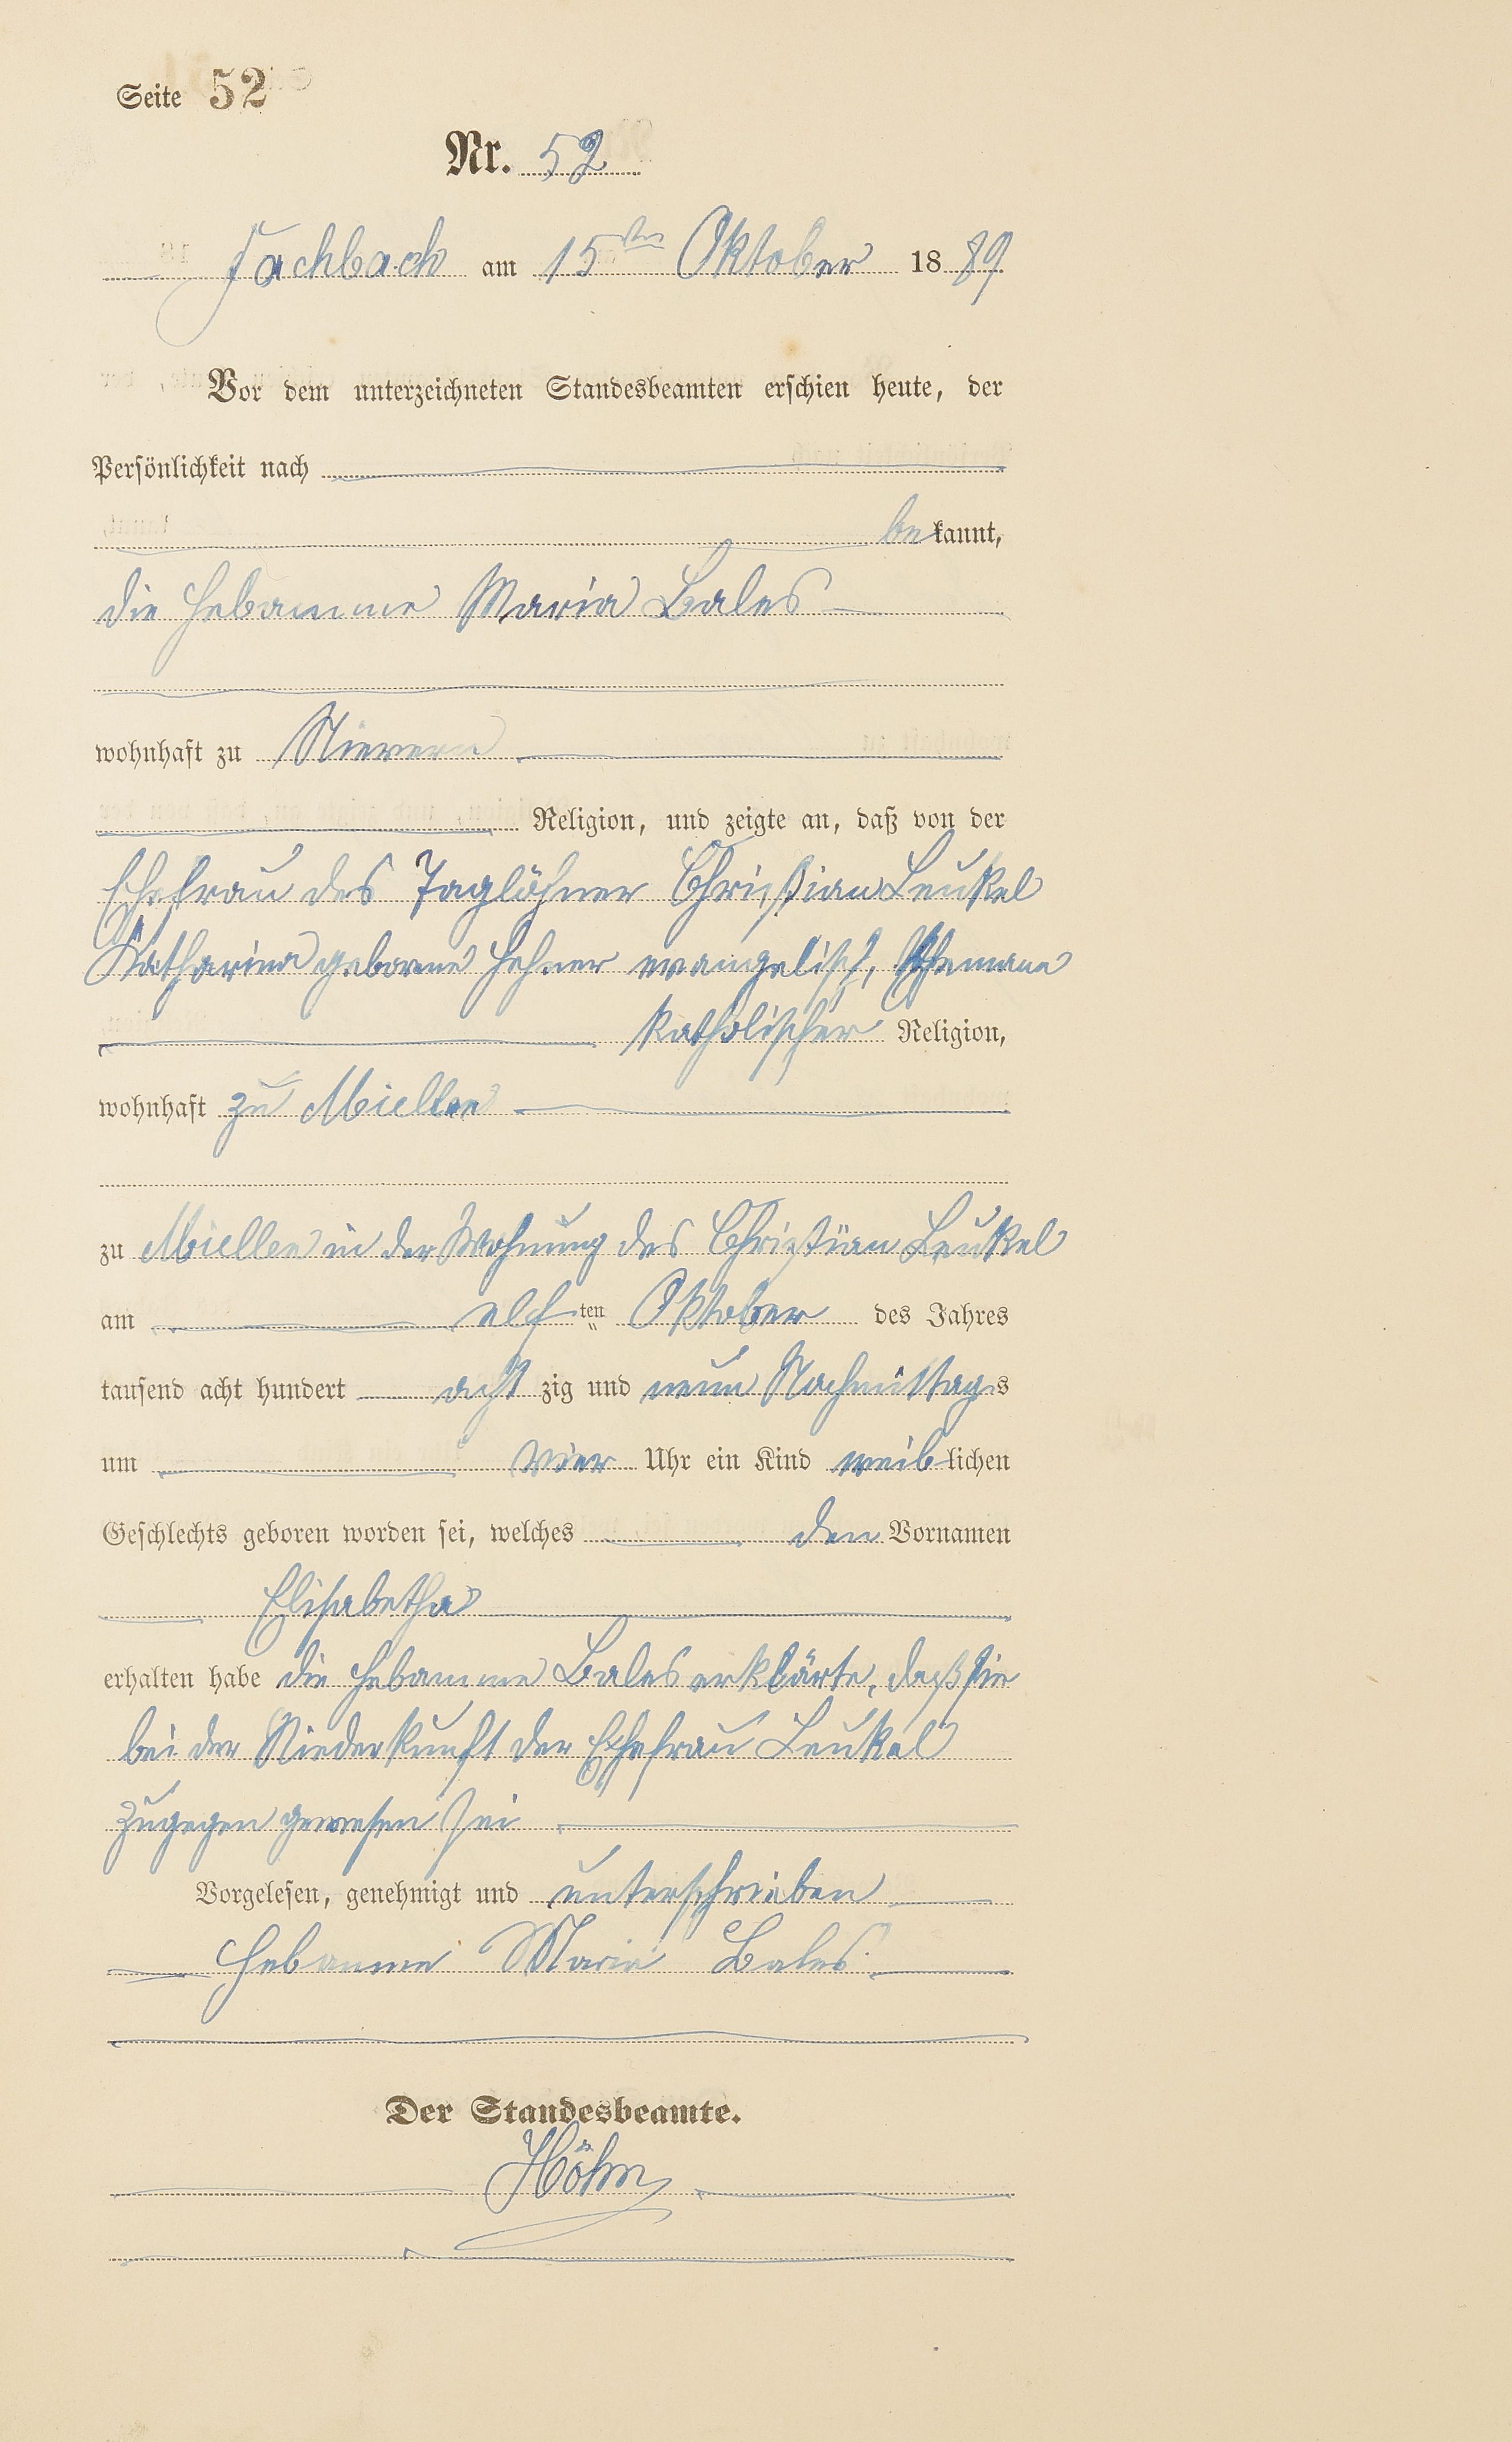 Seite 52
Nr. 52
Fachbach am 15ten Oktober 1889
Vor dem unterzeichneten Standesbeamten erschien heute, der
Persönlichkeit nach
bekannt,
die Hebamme Maria Bales
wohnhaft zu Nievern
Religion, und zeigte an, daß von der
Ehefrau des Taglöhner Christian Leukel
Katharina geborne Hehner evangelisch, Ehemann
katholischer Religion,
wohnhaft zu Miellen
zu Miellen in der Wohnung des Christian Leukel
am elften Oktober des Jahres
tausend acht hundert acht zig und neun Nachmittags
um vier Uhr ein Kind weiblichen
Geschlechts geboren worden sei, welches den Vornamen
Elisabetha
erhalten habe die Hebamme Bales erklärte, daß sie
bei der Niederkunft der Ehefrau Leukel
zugegen gewesen sei
Vorgelesen, genehmigt und unterschrieben
Hebamme Maria Bales
Der Standesbeamte.
Höhn